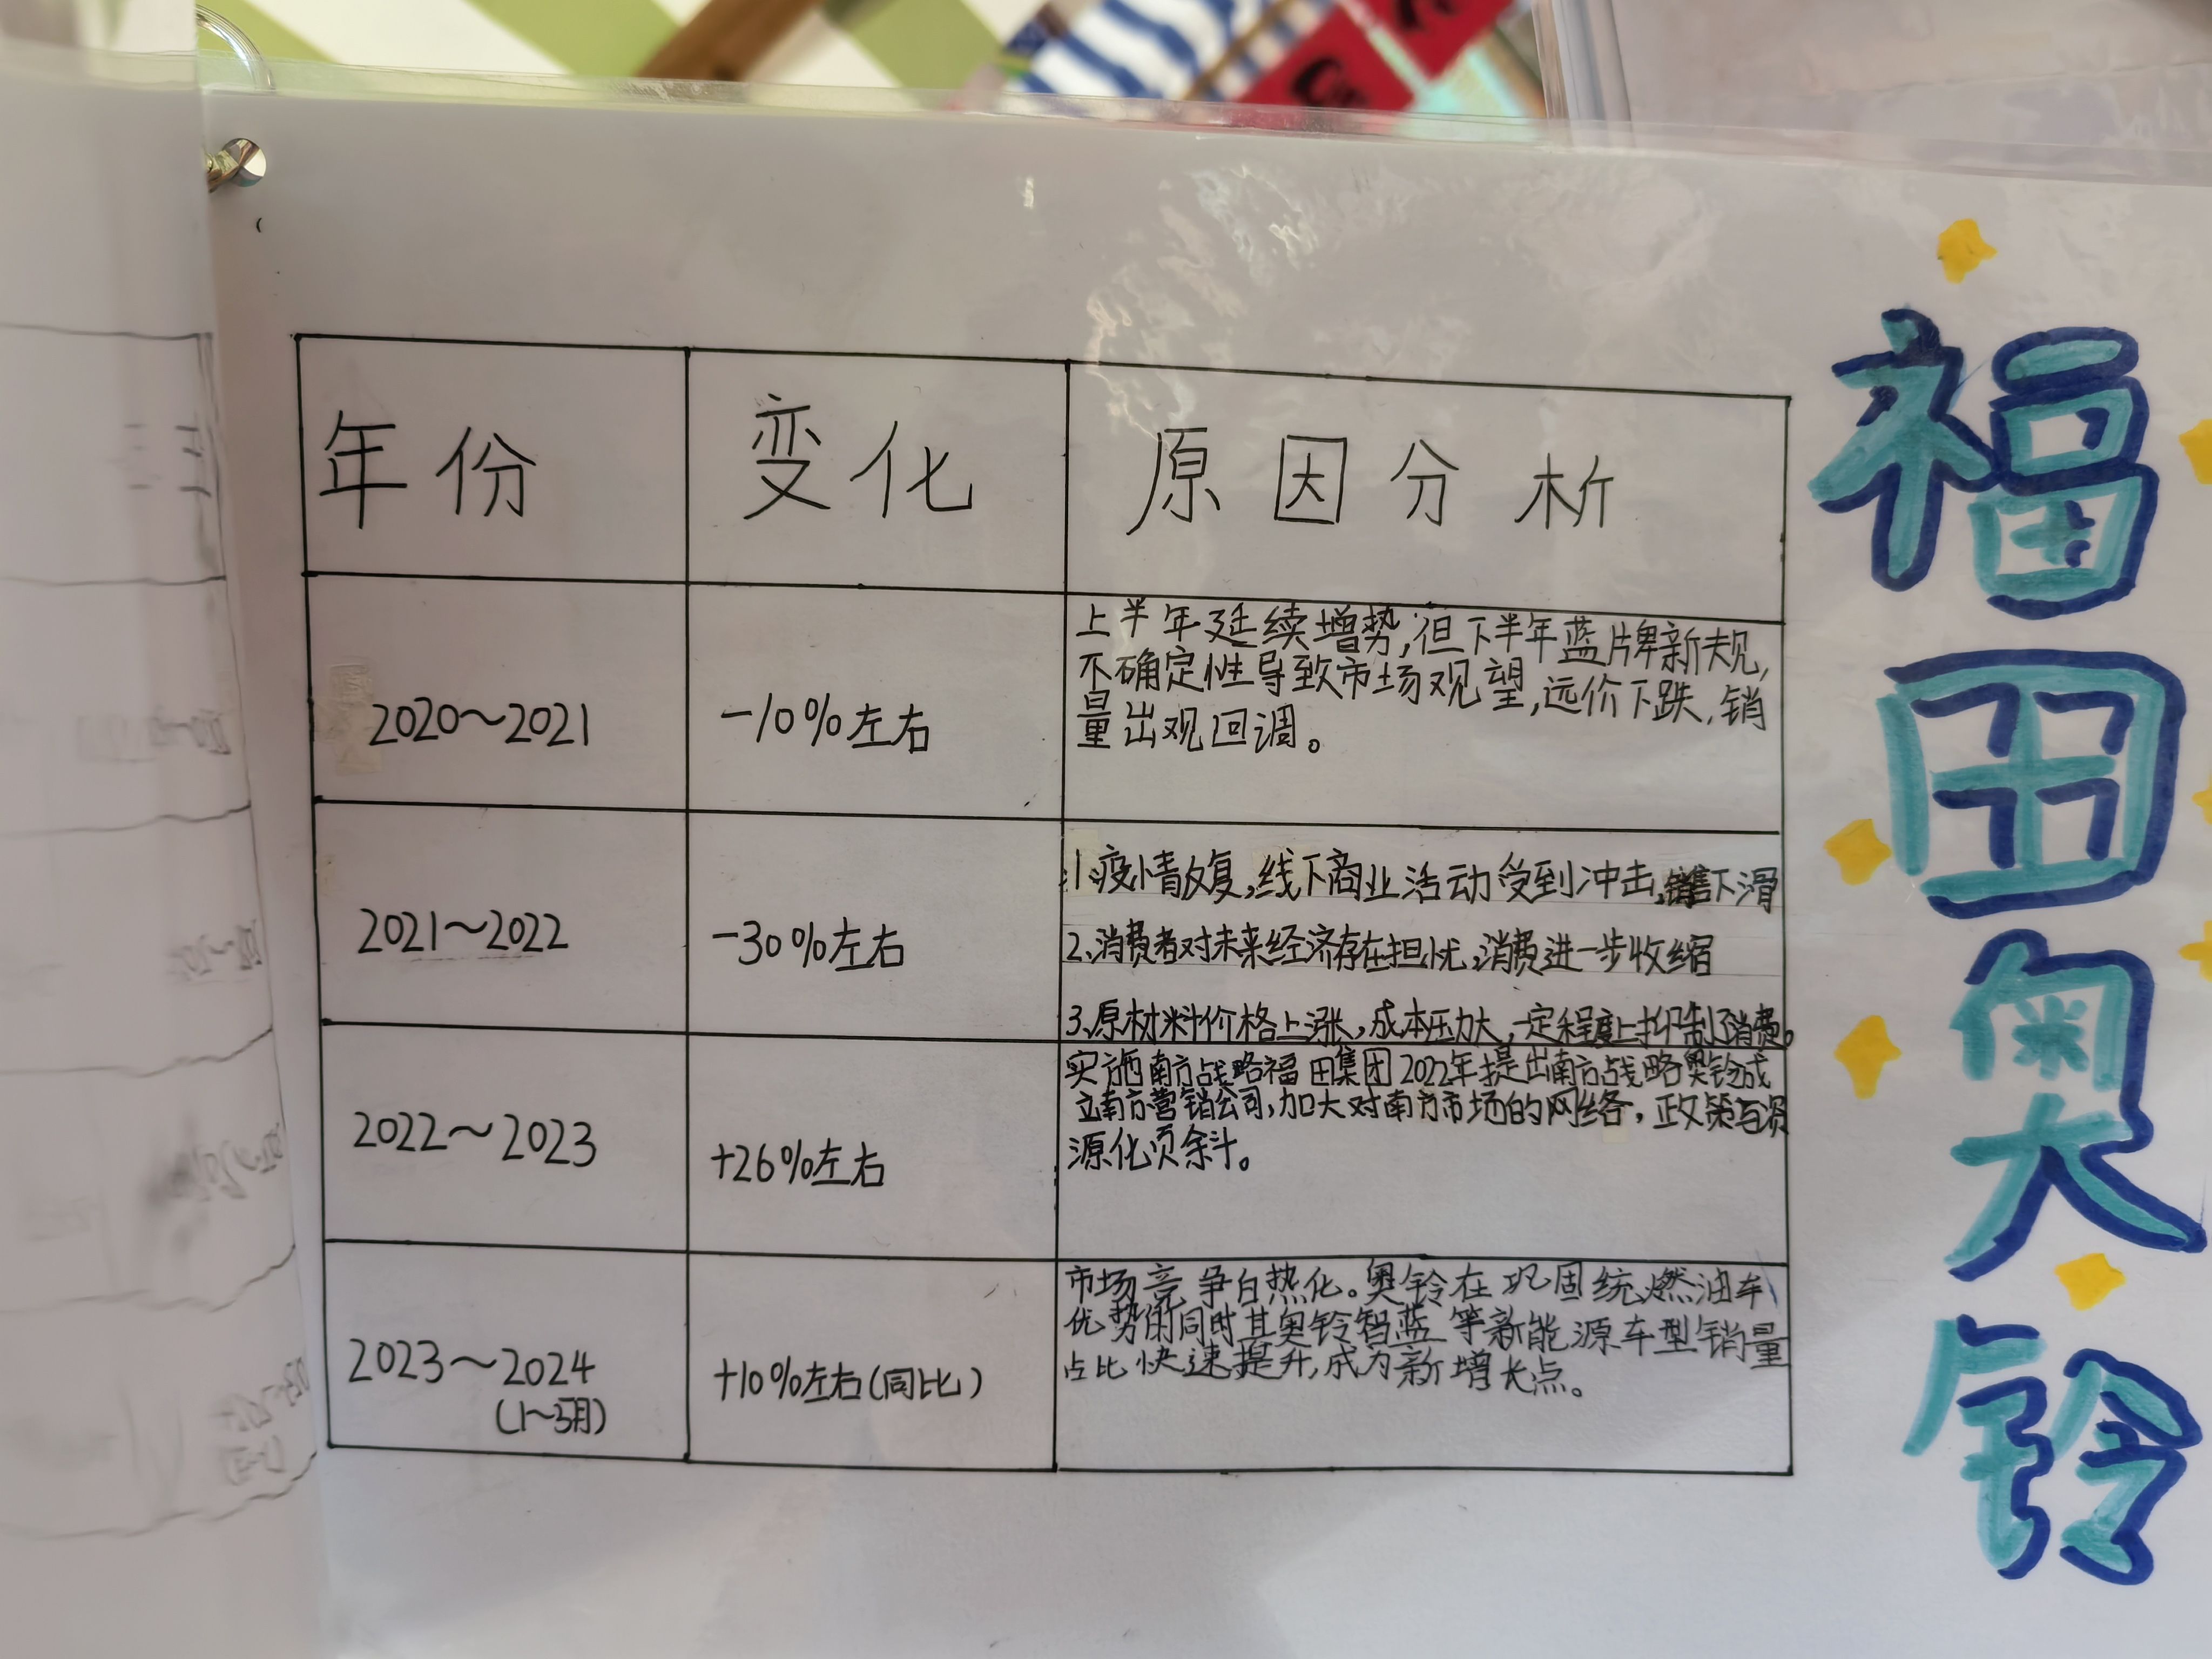 福田奥铃
年份 变化 原因分析
2020～2021 -10%左右
上半年延续增势,但下半年蓝牌新规,
不确定性导致市场观望,远价下跌,销
量出观回调。
2021～2022 -30%左右
1.疫情反复,线下商业活动受到冲击,销售下滑
2.消费者对未来经济存在担忧,消费进一步收缩
3.原材料价格上涨,成本压力大,一定程度上抑制了消费。
2022～2023 +26%左右
实施南方战略福田集团2022年提出南方战略奥铃成
立南方营销公司,加大对南方市场的网络,政策与资
源化页余斗。
2023～2024
(1～3月)
+10%左右(同比)
市场竞争白热化。奥铃在巩固统燃油车
优势的同时其奥铃智蓝等新能源车型销量
占比快速提升,成为新增长点。